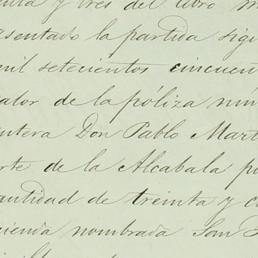 y tres del libro
sentado la partida
mil setecientos cincuen
valor de la póliza núm
Don Pablo Mart
rte de la Alcabala
antidad de treinta y
cienda nombrada San